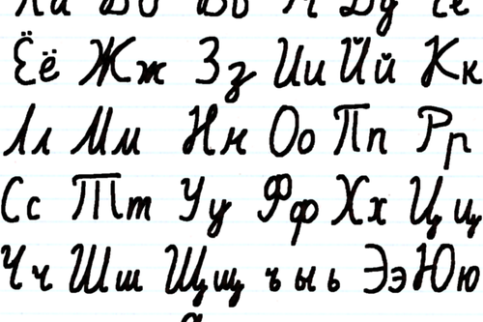 Аа Бб Вв Гг Дд Ее
Ёё Жж Зз Ии Йй Кк
Лл Мм Нн Оо Пп Рр
Сс Тт Уу Фф Хх Цц
Чч Шш Щщ ъ ы ь Ээ Юю